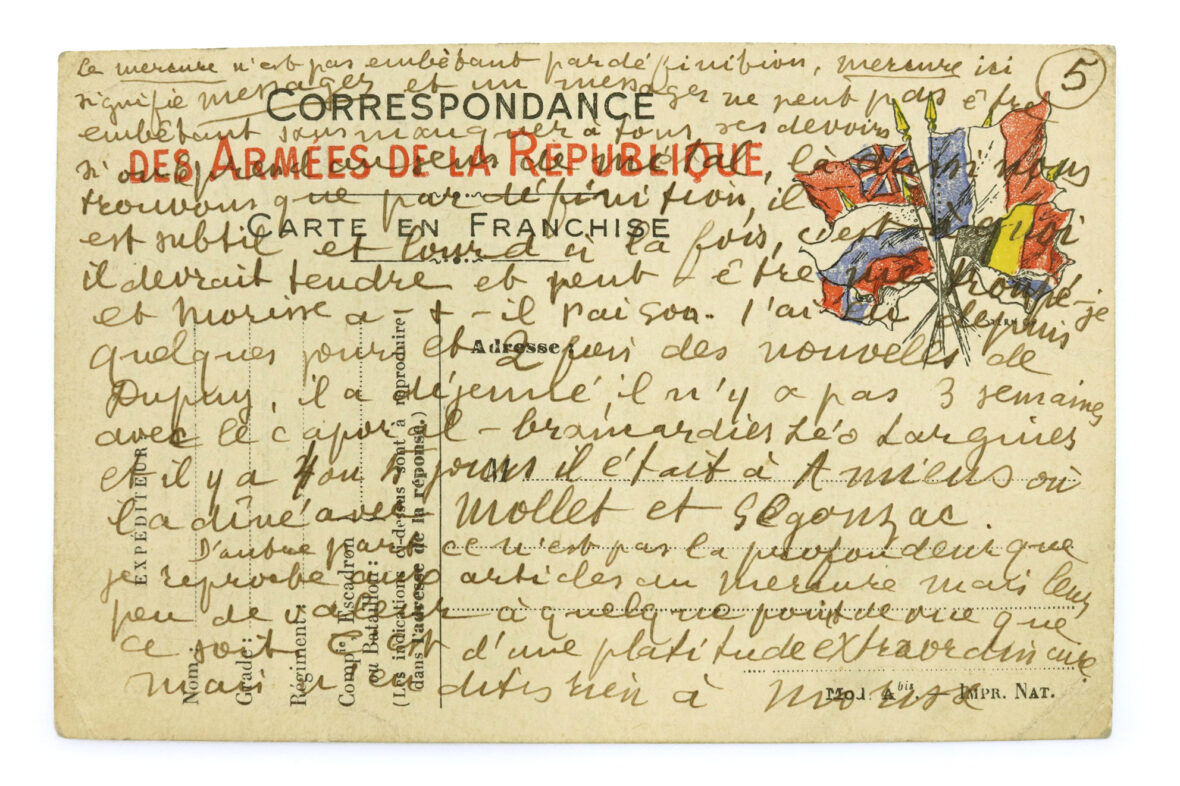 Le mercure n'est pas embêtant par définition, mercure ici
5
signifie messager et un messager ne peut pas être
CORRESPONDANCE
embêtant sans manquer à tous ses devoirs
DES ARMÉES DE LA RÉPUBLIQUE
si on le prend au sens de métal, là aussi nous
trouvons que par définition, il
CARTE EN FRANCHISE
est subtil et lourd à la fois, c'est à quoi
il devrait tendre et peut-être me trompé-je
et Morisse a-t-il raison. J'ai eu depuis
quelques jours et 2 fois des nouvelles de
Adresse :
Dupuy, il a déjeuné, il n'y a pas 3 semaines
avec le caporal-brancardier Léo Larguier
et il y a 4 ou 5 jours il était à Amiens où
M
il a dîné avec Mollet et Segonzac.
D'autre part ce n'est pas la profondeur que
je reproche aux articles du mercure mais leur
peu de valeur à quelque point de vue que
ce soit. C'est d'une platitude extraordinaire.
Mais n'en dites rien à Morisse
Mod. A bis. — IMPR. NAT.
EXPÉDITEUR
Nom :
Grade :
Régiment :
Compie, Escadron
ou Bataillon :
(Les indications ci-dessus sont à reproduire
dans l'adresse de la réponse.)